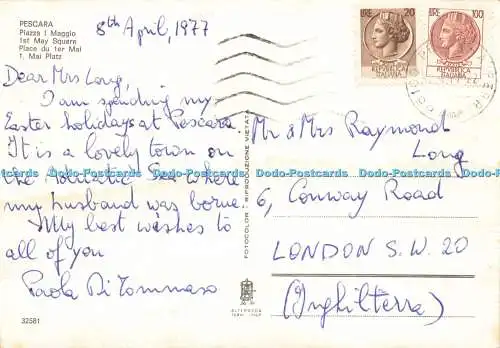 PESCARA
Piazza I Maggio
1st May Square
Place du 1er Mai
1. Mai Platz
8th April, 1977
Dear Mrs Long,
I am spending my
Easter holidays at Pescara.
It is a lovely town on
the Adriatic Sea where
my husband was borne.
My best wishes to
all of you
Paola Di Tommaso
32581
FOTOCOLOR RIPRODUZIONE VIETATA
LIRE 20
REPVBBLICA
ITALIANA
LIRE 100
REPVBBLICA
ITALIANA
Mr & Mrs Raymond
Long
6, Conway Road
LONDON S.W. 20
(Inghilterra)
Dodo-Postcards Dodo-Postcards Dodo-Postcards Dodo-Postcards Dodo-Postcards